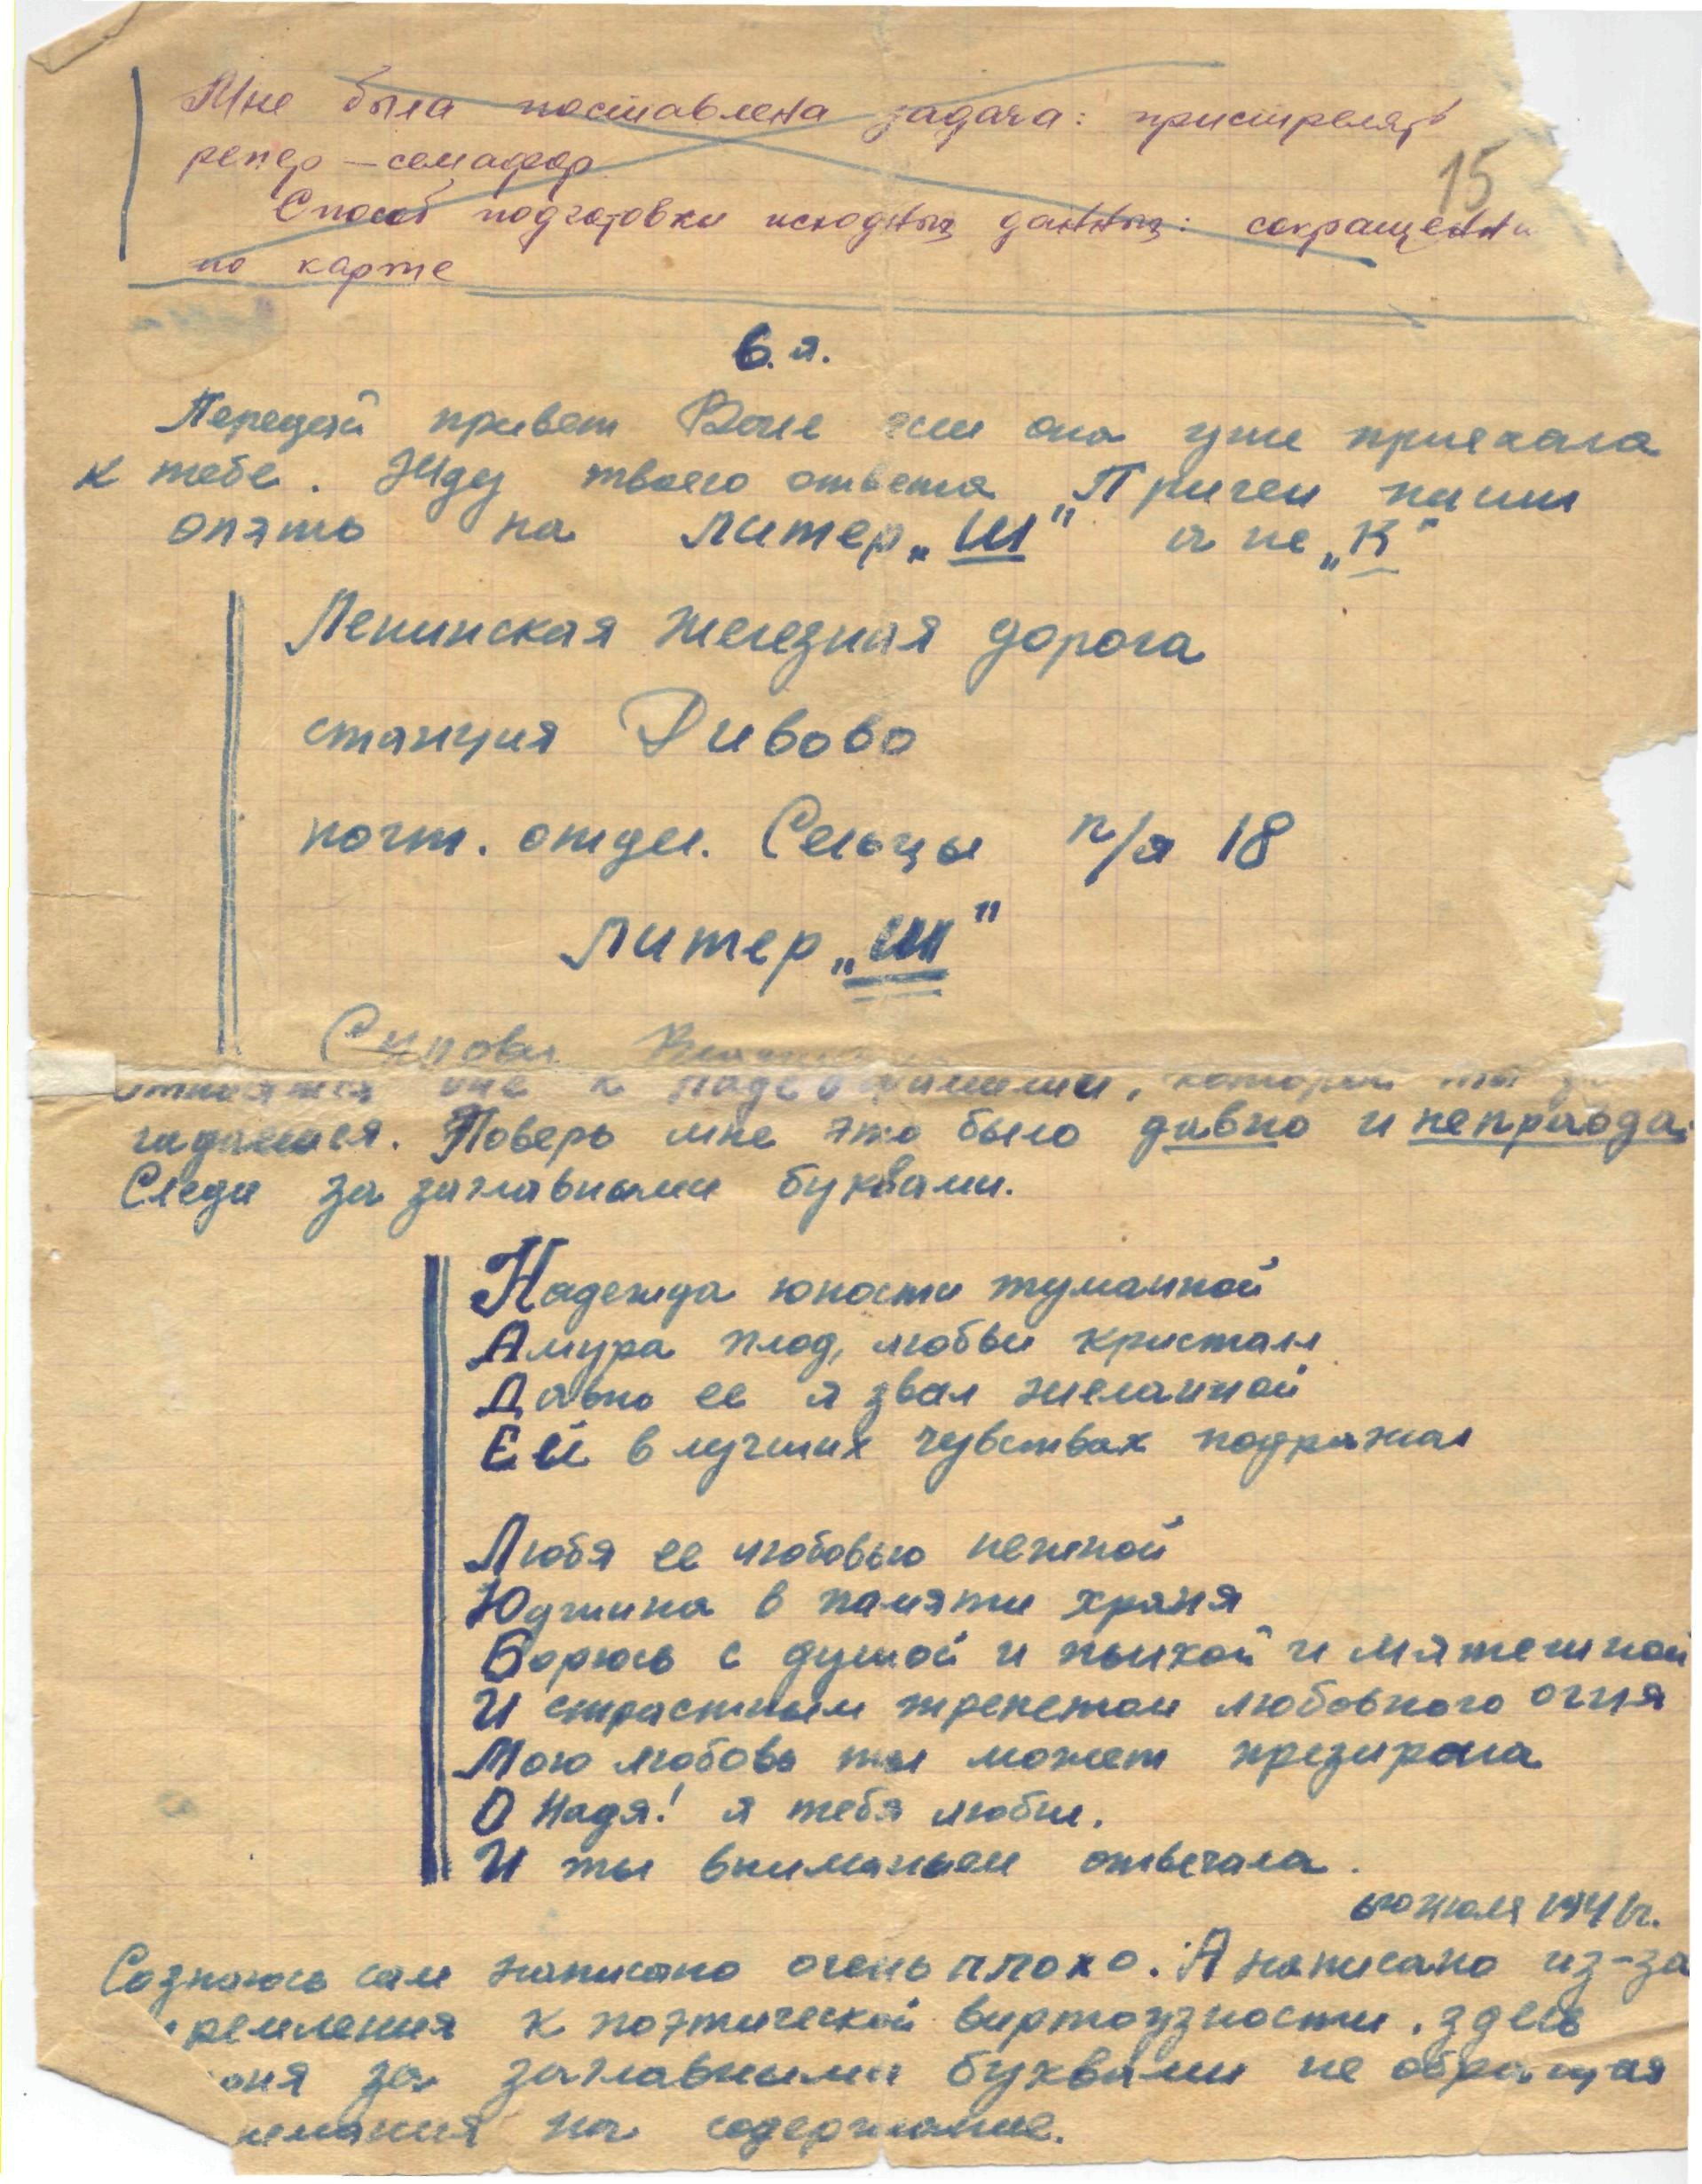 Мне была поставлена задача: пристрелять
репер – семафор
15
Способ подготовки исходных данных: сокращенны
по карте
6.я.
Передай привет Воле она уже приехала
к тебе. Жду твоего ответа „Причем пиши
опять на литер „Ш" а не „К"
Ленинская железная дорога
станция Дивово
почт. отдел. Сельцы п/я 18
литер „Ш"
которым ты
Поверь мне это было давно и неправда.
Следи за заглавными буквами.
Надежда юности туманной
Амура плод, любви кристалл
Давно ее я звал желанной
Ей в лучших чувствах подражал
Любя ее любовью нежной
в памяти храня
Борюсь с душой и пылкой и мятежной
И страстным трепетом любовного огня
Мою любовь ты может презирала
О Надя! я тебя любил.
И ты вниманьем отвечала.
июля 1941г.
Сознаюсь сам написано очень плохо. А написано из-за
ремления к поэтической виртоузности. здесь
оня за заглавными буквами не обращая
имания на содержание.